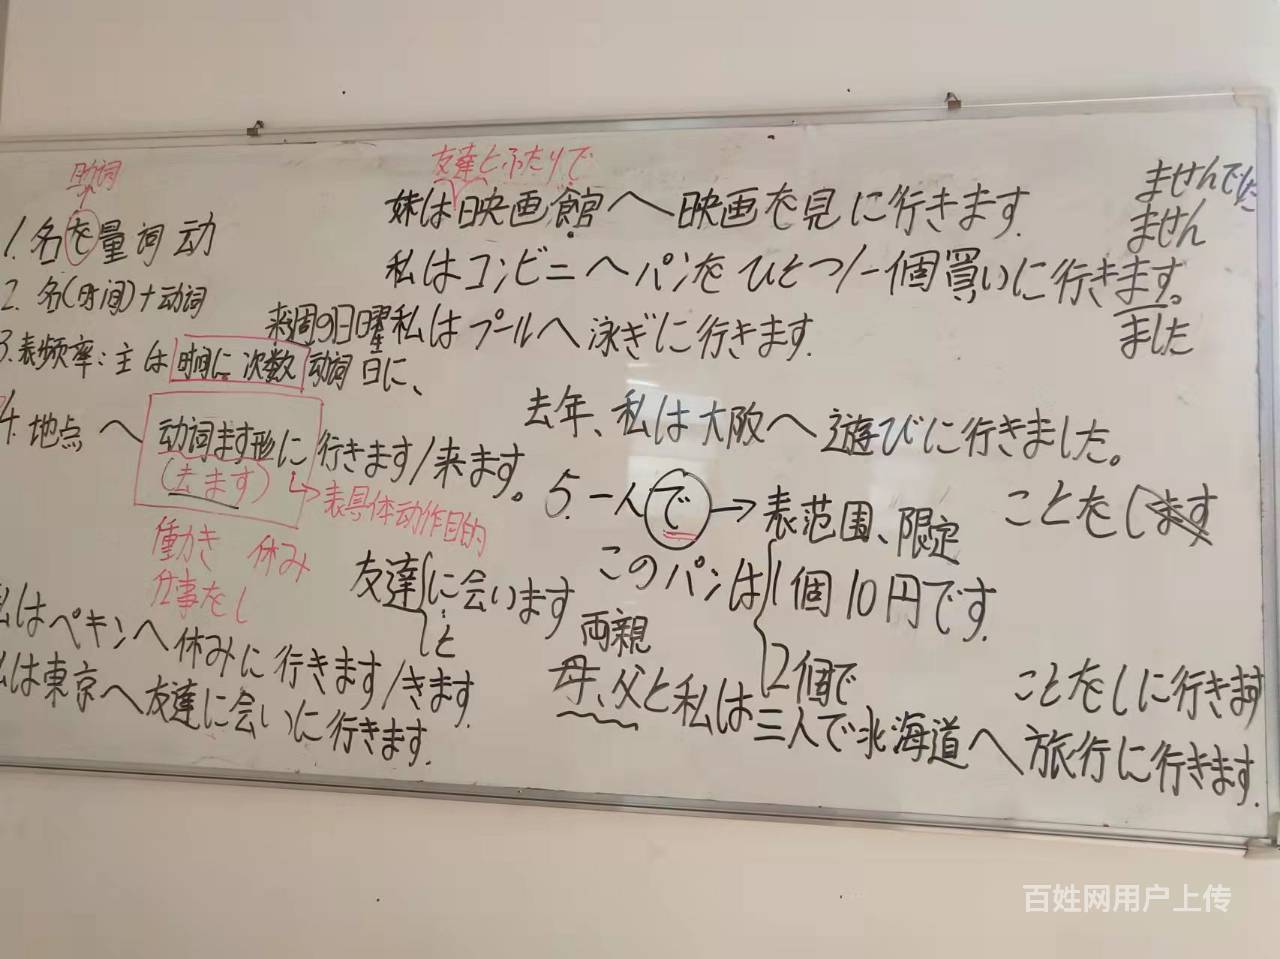 助词
1. 名を量词 动
2. 名(时间)+动词
3. 表频率：主は 时间に 次数 动词 日に、
4. 地点 へ 动词ます形に 行きます/来ます。
(去ます)
表具体动作目的
働き 休み
仕事をし
友達 に 会います
と
私はペキンへ休みに行きます/きます.
私は東京へ友達に会いに行きます.
友達とふたりで
妹は映画館へ映画を見に行きます.
私はコンビニへパンをひとつ/一個買いに行きます。
ませんでした
ません
ました
来週の日曜私はプールへ泳ぎに行きます.
去年、私は大阪へ遊びに行きました。
5. 一人で→表范围、限定
ことをします
このパンは 1個10円です.
2個で
両親
母、父と私は三人で北海道へ旅行に行きます.
ことをしに行きます
百姓网用户上传